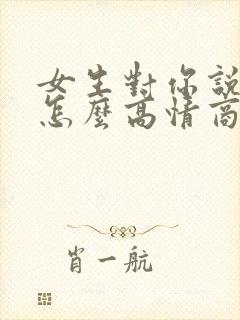 女生對你說
怎麼高情商
肖一航